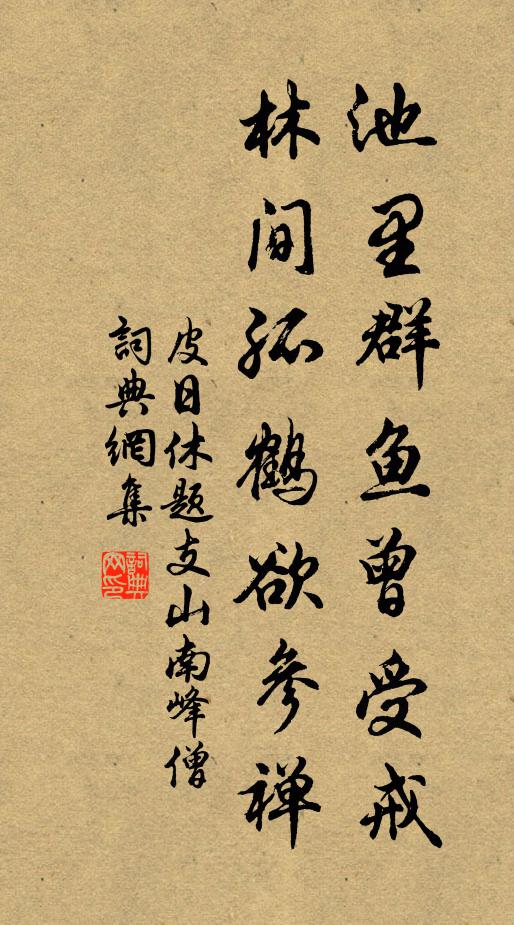 池里群鱼曾受戒
林间孤鶴欲参禅
皮日休题支山南峰僧
詞典網集
詞典网印